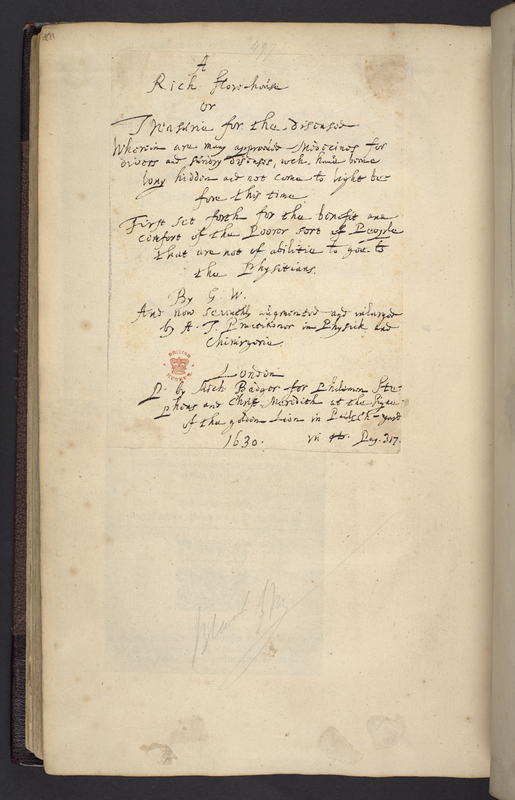 497
A
Rich Store-house
or
Treasurie for the diseased
Wherein are many approved Medicines for
divers and sundry diseases, wch. have beene
long hidden and not come to light be=
fore this time
First set forth for the benefit and
comfort of the Poorer sort of People
that are not of abilitie to goe to
the Physitians.
By G. W.
And now seventhly augmented and inlarged
by A. T. Practitioner in Physick and
Chirurgerie.
London
P. by Rich Badger for Philemon Ste-
phens and Christ Meredith at the signe
of the golden Lion in Paulsch-yard
1630. Pag. 317.
BRITISH
MUSEUM